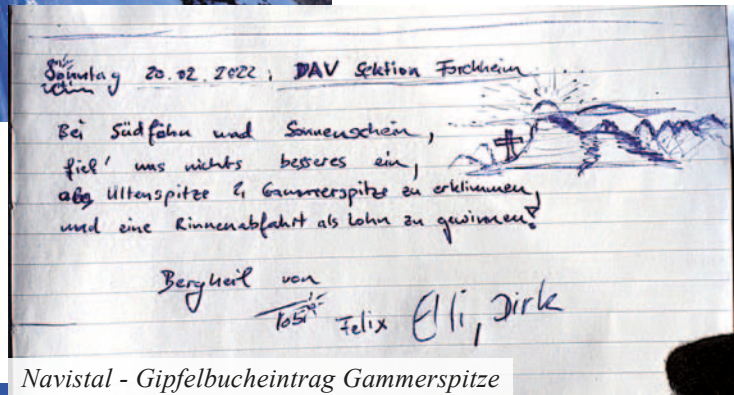 Sonntag 20.02.2022, DAV Sektion Forchheim
Bei Südföhn und Sonnenschein,
fiel' uns nichts besseres ein,
als Ultenspitze & Gammerspitze zu erklimmen,
und eine Rinnenabfahrt als Lohn zu gewinnen!
Bergheil von
Tosi Felix Elli, Dirk
Navistal - Gipfelbucheintrag Gammerspitze